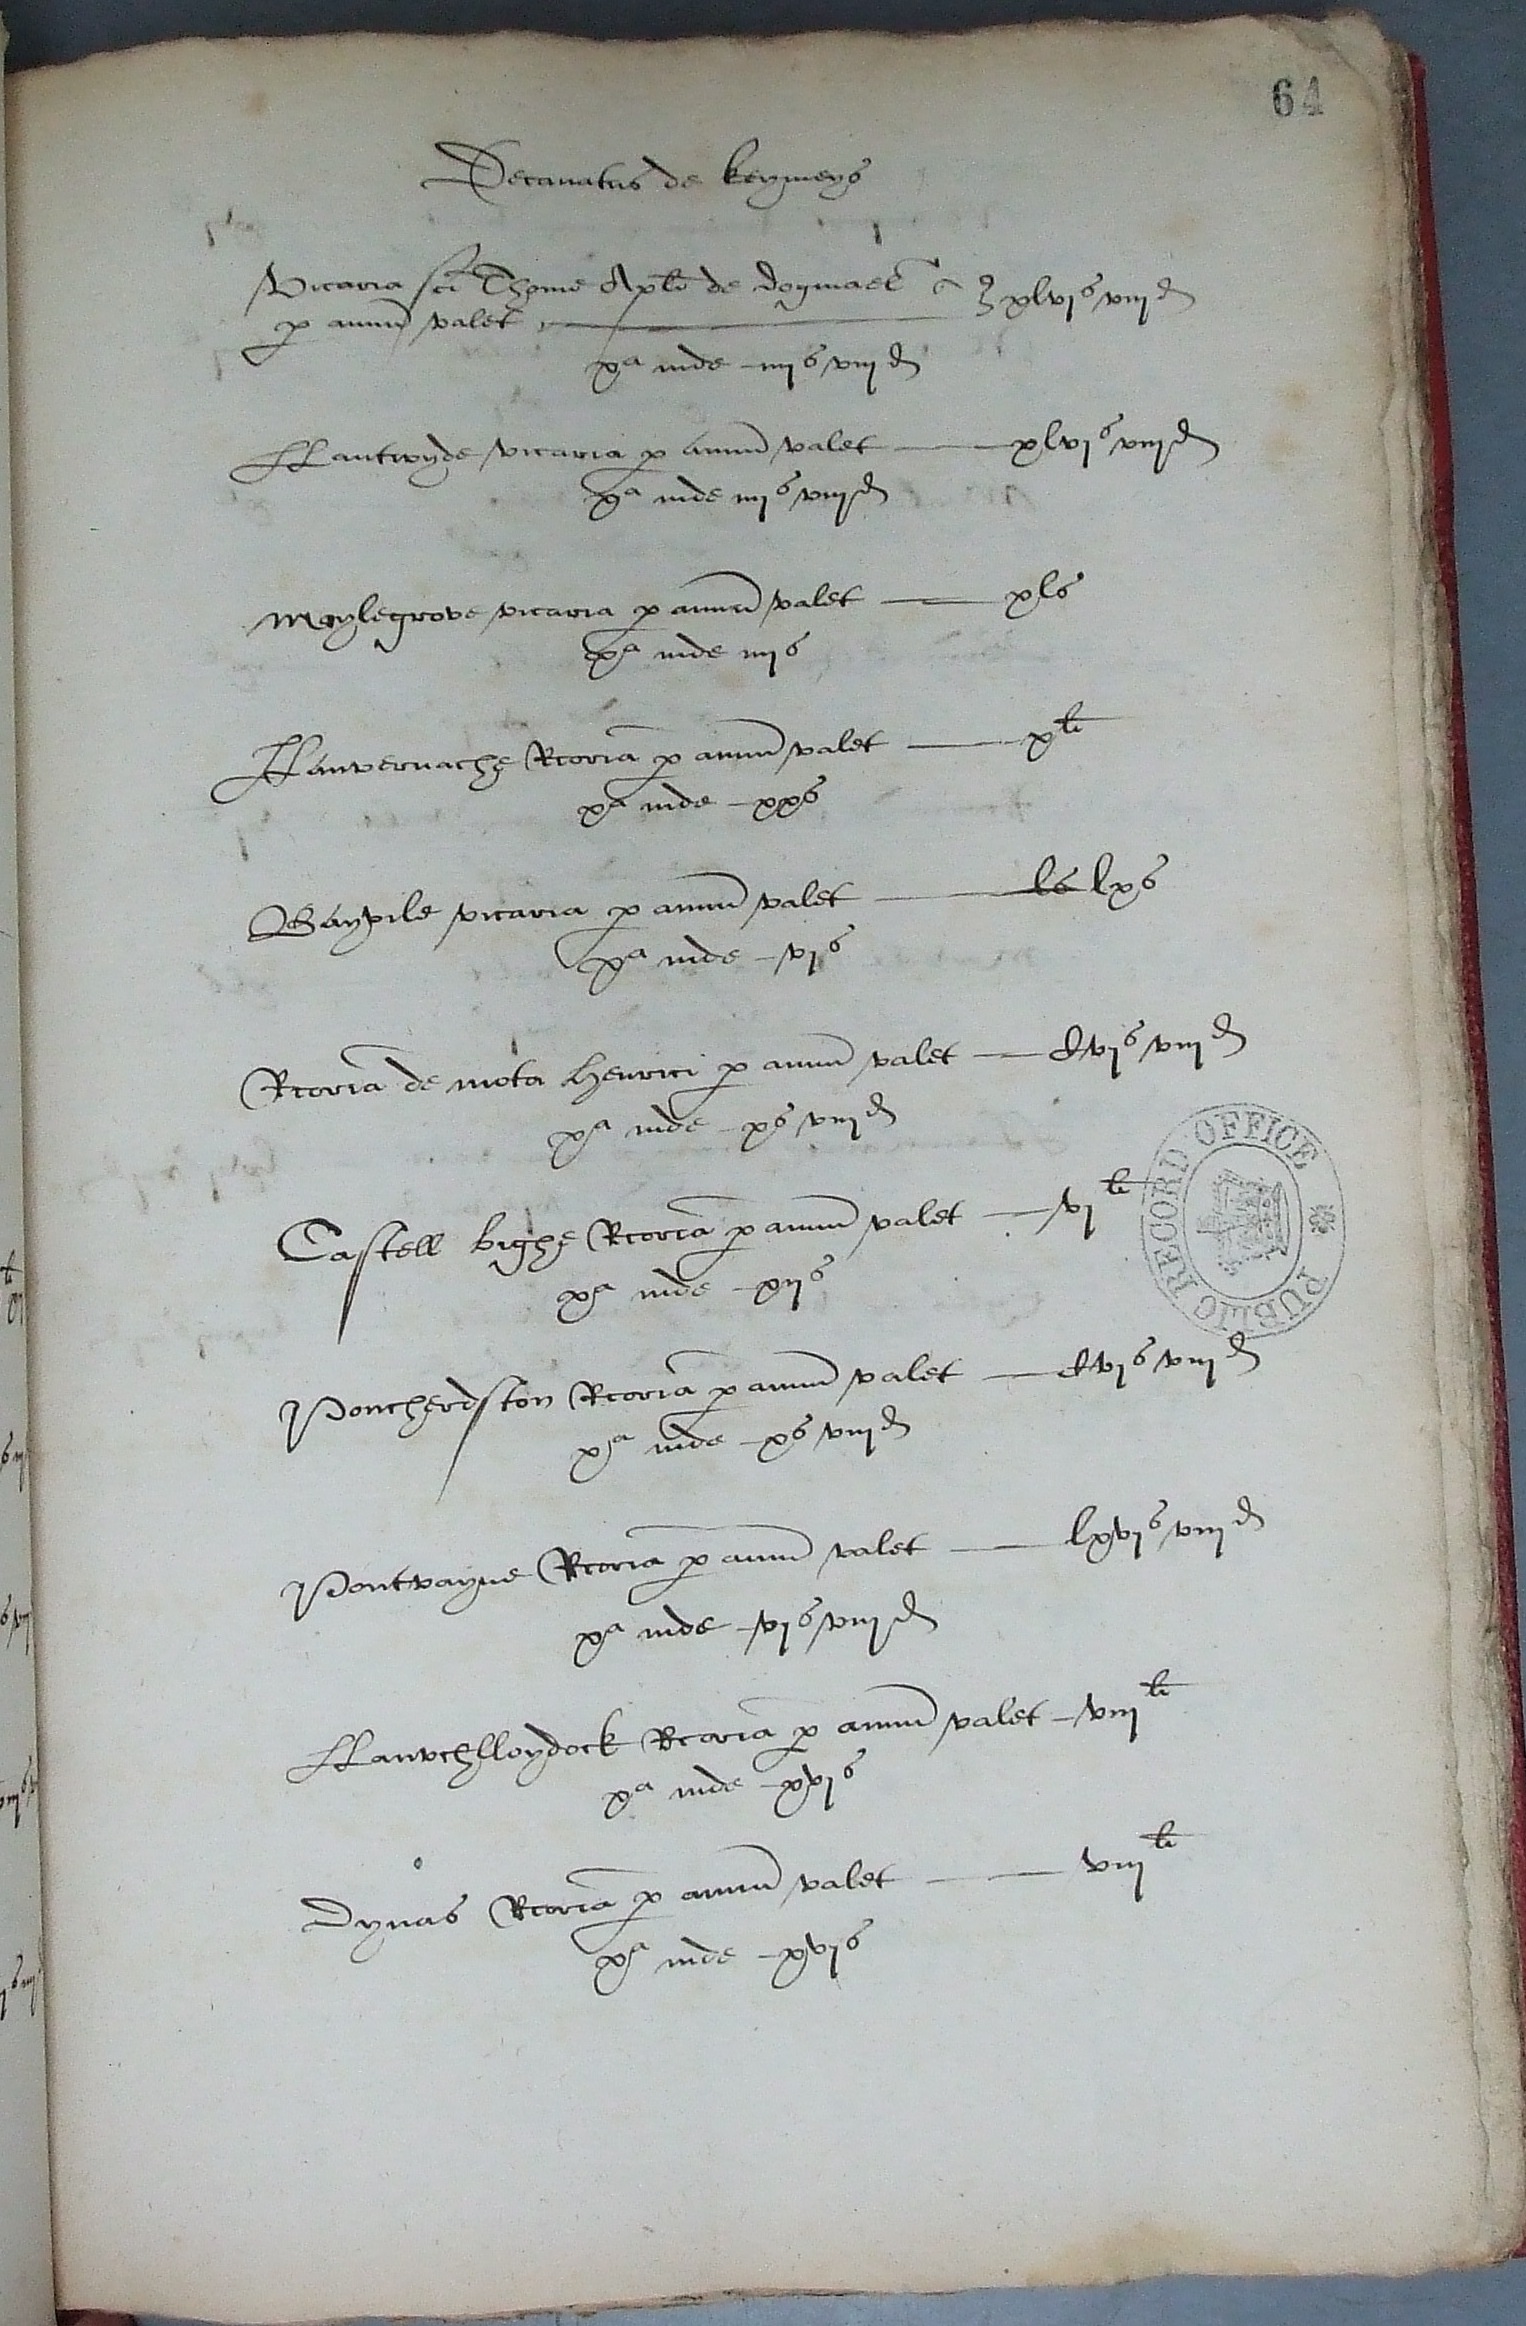 64
Decanatus de Keymeys
Vicaria sci Thome Apli de Dogmael
p annu valet xlvjs viijd
xa inde iiijs viijd
Llantwyde vicaria p annu valet xlvjs viijd
xa inde iiijs viijd
Moylegrove vicaria p annu valet xls
xa inde iiijs
Llanvernache Rcoria p annu valet xli
xa inde xxs
Bayvile vicaria p annu valet ls lxs
xa inde vjs
Rcoria de mota henrici p annu valet Cvjs viijd
xa inde xs viijd
Castell bighe Rcoria p annu valet vjli
xa inde xijs
Poncherdston Rcoria p annu valet Cvjs viijd
xa inde xs viijd
Pontvayne Rcoria p annu valet lxvjs viijd
xa inde vjs viijd
Llanvchlloydock Rcoria p annu valet viijli
xa inde xvjs
Dynas Rcoria p annu valet viijli
xa inde xvjs
PUBLIC RECORD OFFICE